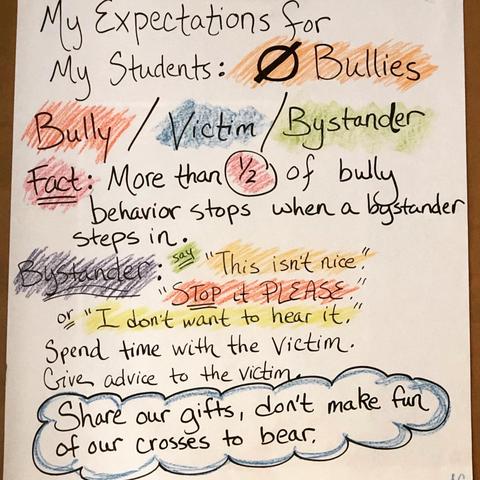 My Expectations for
My Students: Ø Bullies
Bully / Victim / Bystander
Fact: More than 1/2 of bully
behavior stops when a bystander
steps in.
Bystander: say "This isn't nice."
"STOP it PLEASE."
or "I don't want to hear it."
Spend time with the Victim.
Give advice to the victim.
Share our gifts, don't make fun
of our crosses to bear.